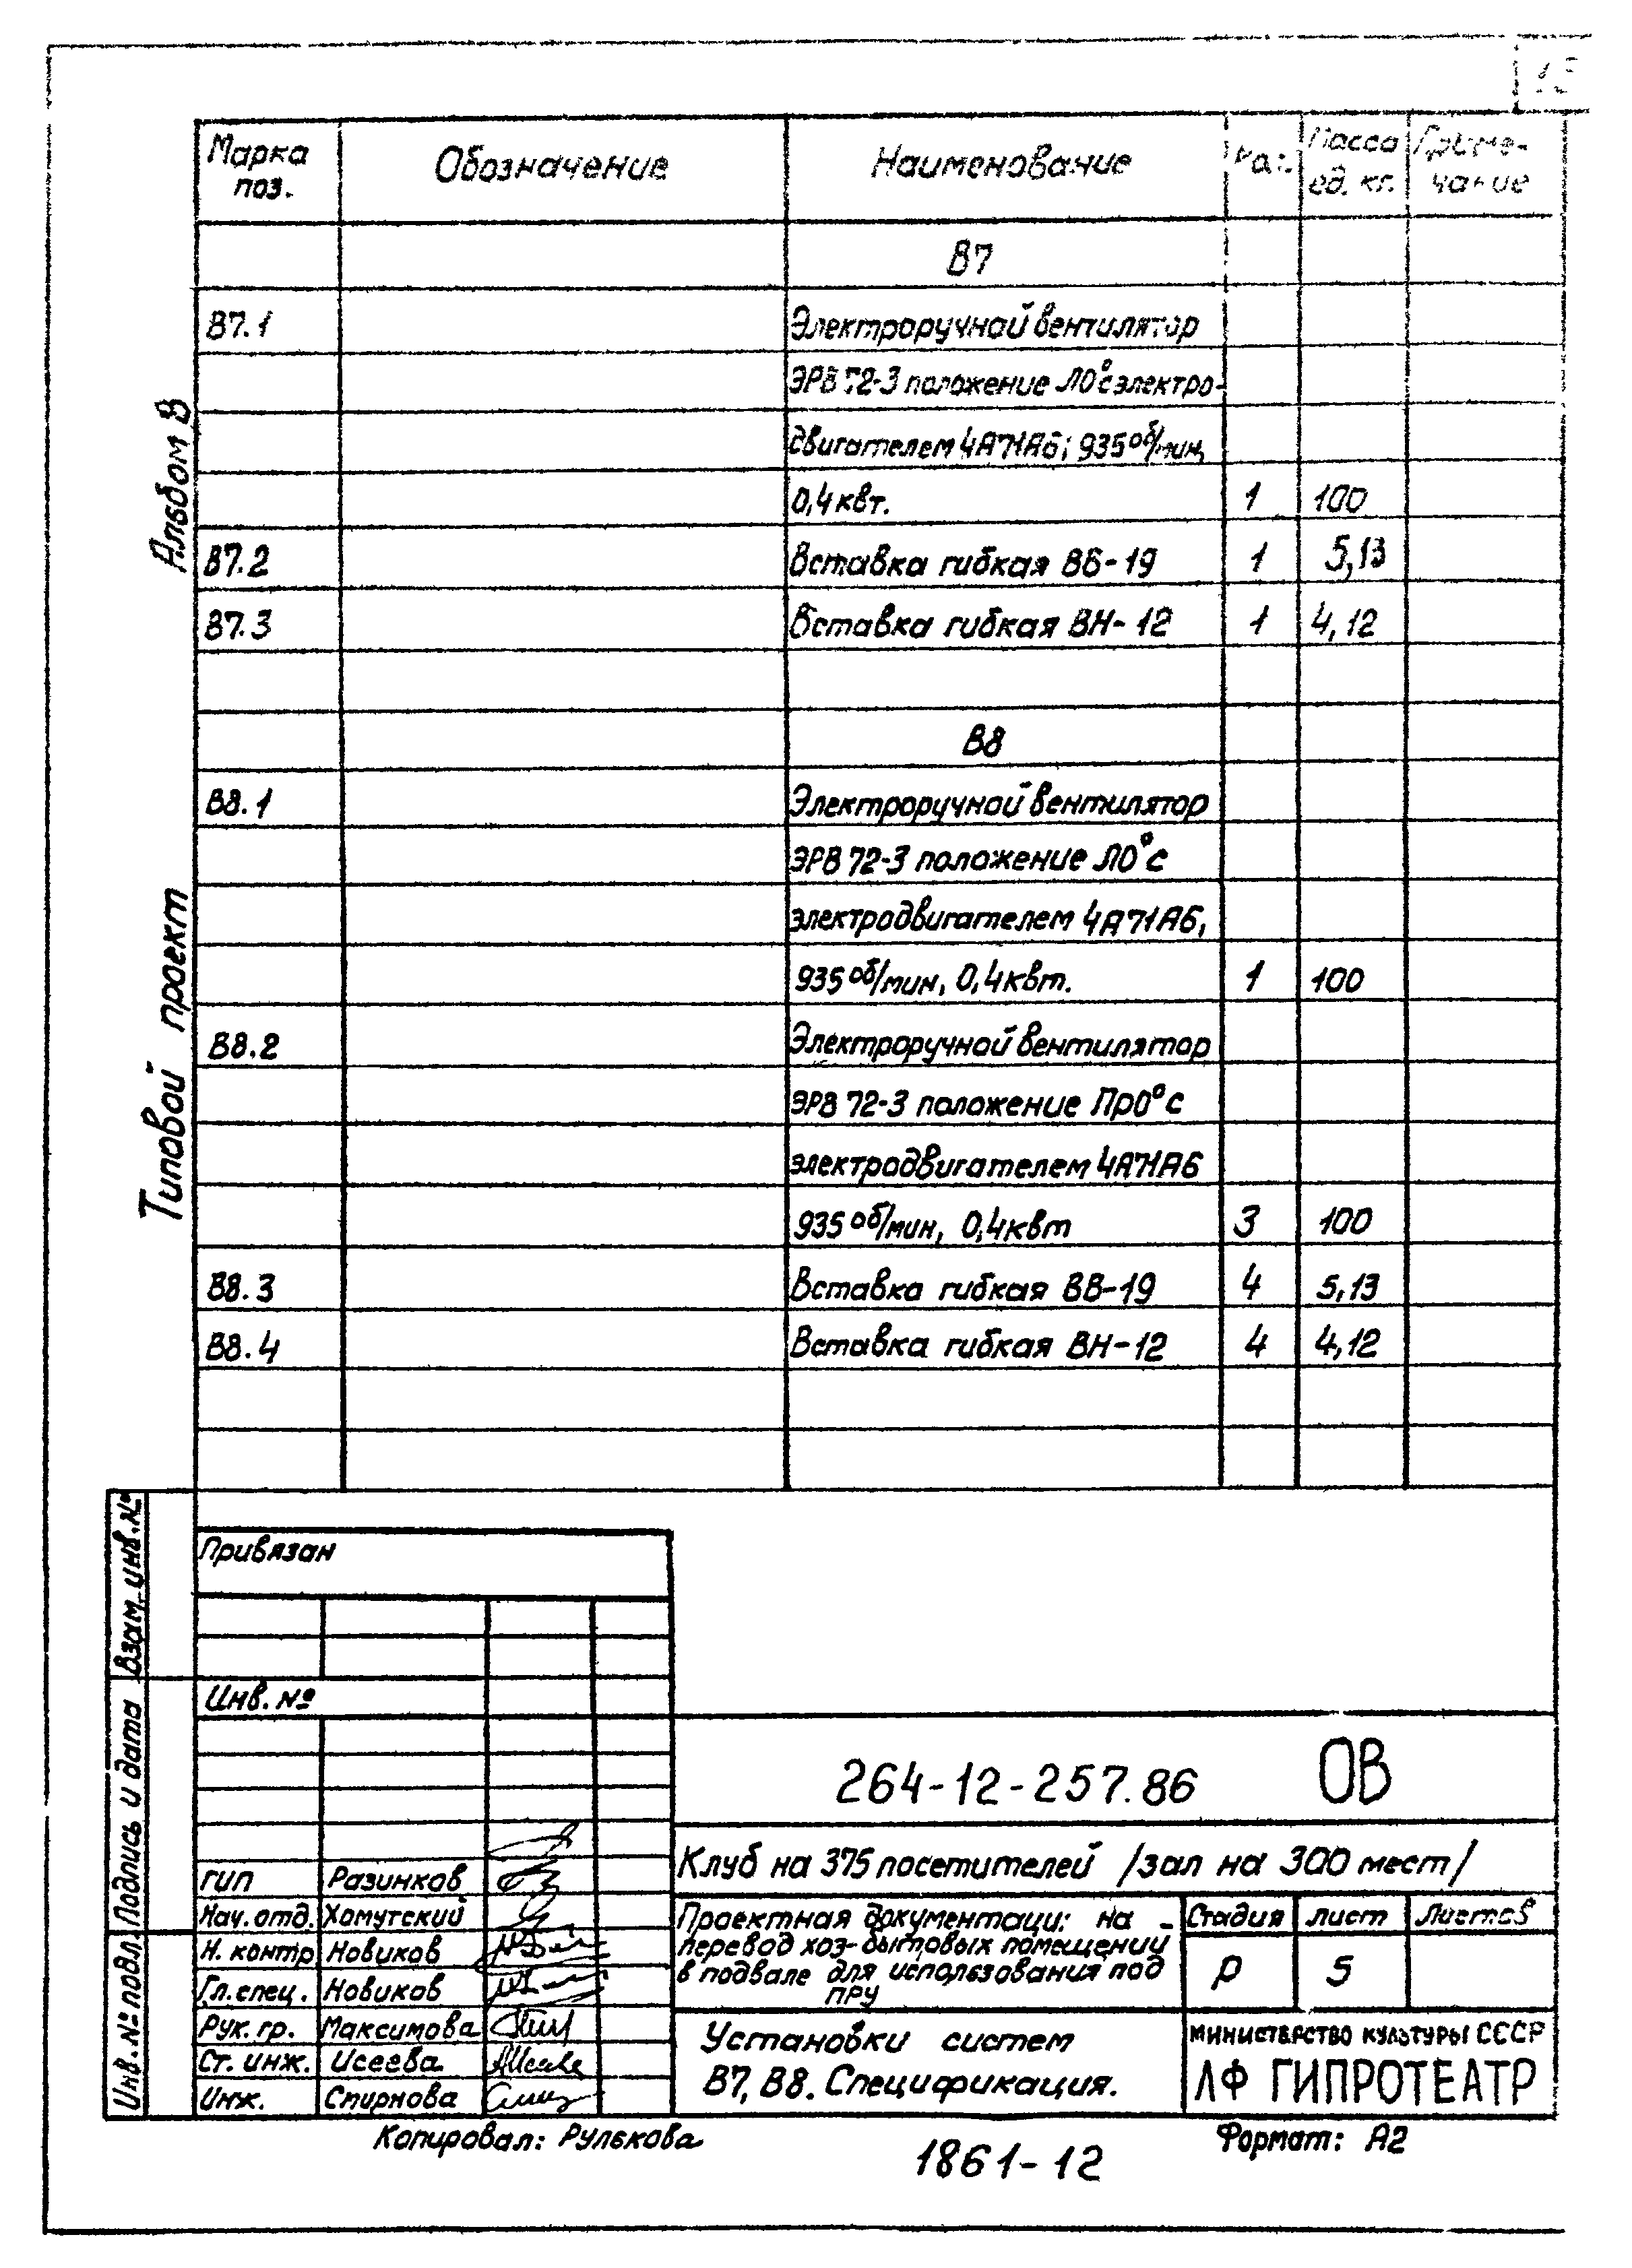 15
Марка поз. Обозначение Наименование Кол. Масса ед. кг. Приме-чание
В7
В7.1 Электроручной вентилятор
ЭРВ 72-3 положение Л0° с электро-
двигателем 4А71А6; 935 об/мин,
0,4 квт. 1 100
В7.2 Вставка гибкая ВВ-19 1 5,13
В7.3 Вставка гибкая ВН-12 1 4,12
В8
В8.1 Электроручной вентилятор
ЭРВ 72-3 положение Л0° с
электродвигателем 4А71А6,
935 об/мин, 0,4 квт. 1 100
В8.2 Электроручной вентилятор
ЭРВ 72-3 положение Пр0° с
электродвигателем 4А71А6
935 об/мин, 0,4 квт 3 100
В8.3 Вставка гибкая ВВ-19 4 5,13
В8.4 Вставка гибкая ВН-12 4 4,12
Альбом 8
Типовой проект
Взам. инв. №
Подпись и дата
Инв. № подл.
Привязан
Инв. №
264-12-257.86 ОВ
Клуб на 375 посетителей /зал на 300 мест/
ГИП Разинков
Нач. отд. Хомутский
Н. контр Новиков
Гл. спец. Новиков
Рук. гр. Максимова
Ст. инж. Исеева
Инж. Спирнова
Проектная документаци: на
перевод хоз-бытовых помещений
в подвале для использования под
ПРУ
Стадия Лист Листов
Р 5
Установки систем
В7, В8. Спецификация.
МИНИСТЕРСТВО КУЛЬТУРЫ СССР
ЛФ ГИПРОТЕАТР
Копировал: Рулькова
Формат: А2
1861-12